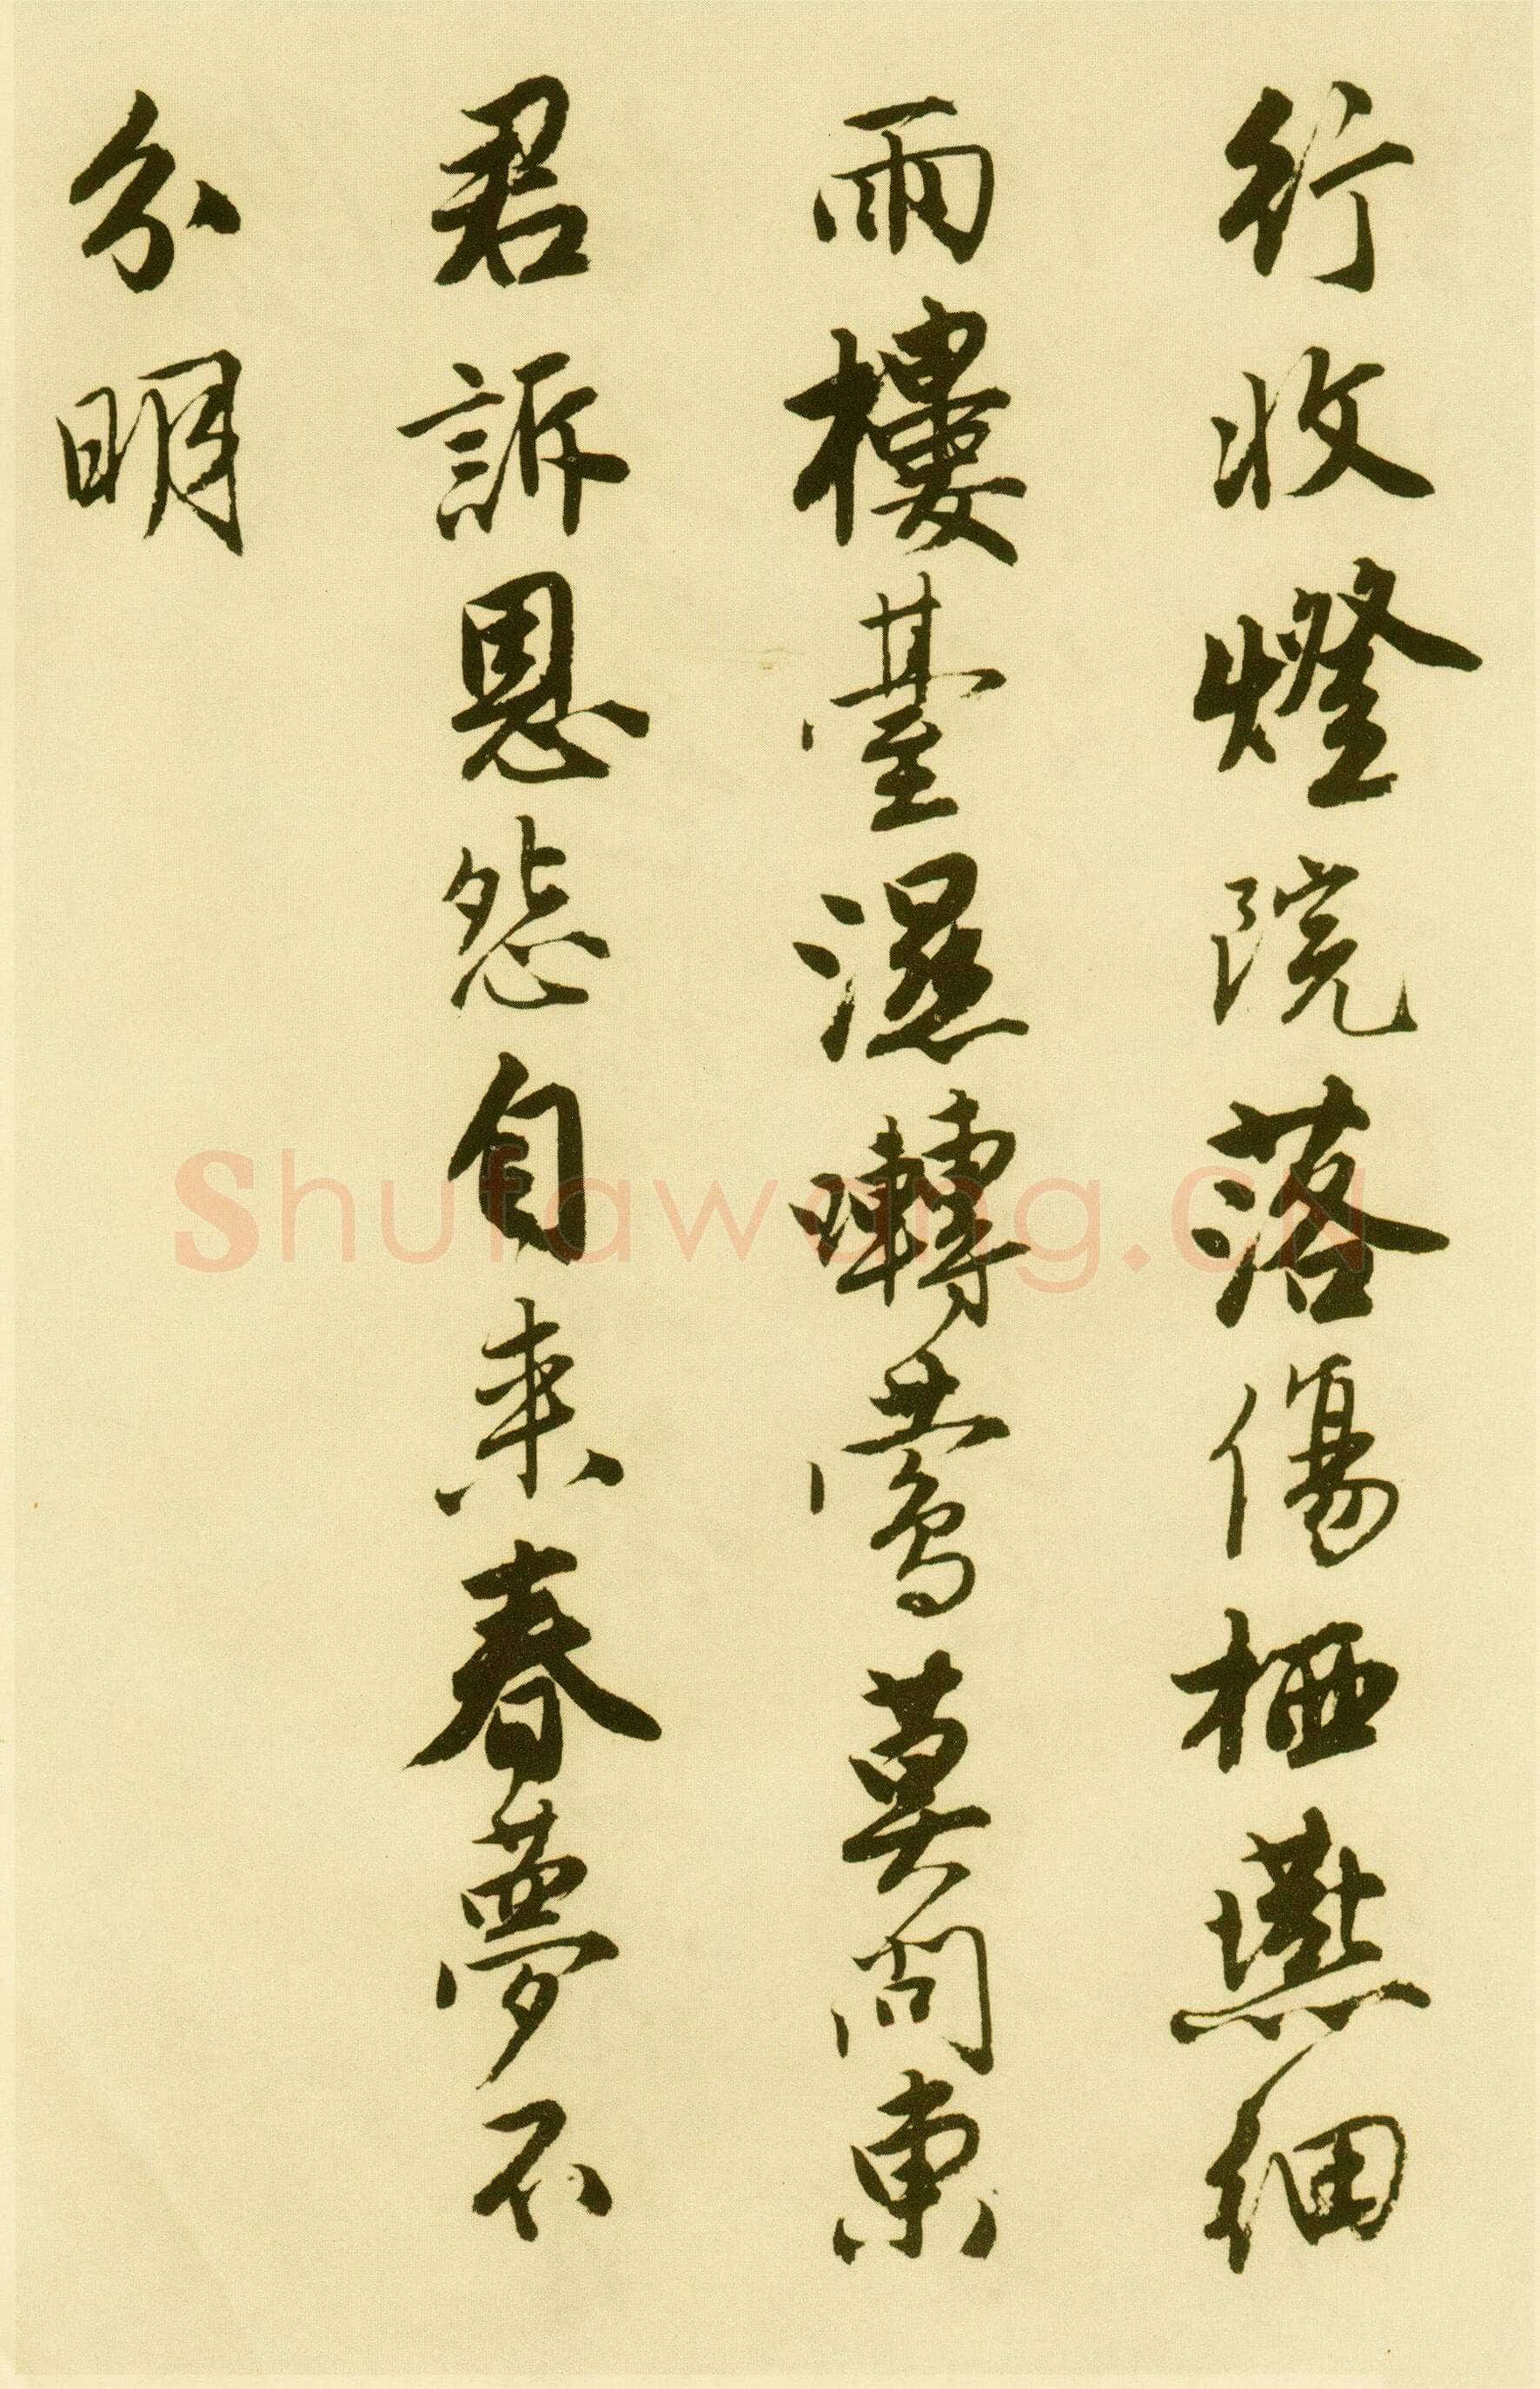 行收燈院落傷栖燕細
雨樓臺濕囀鶯莫問東
君訴恩怨自來春夢不
分明
Shufawang.CN